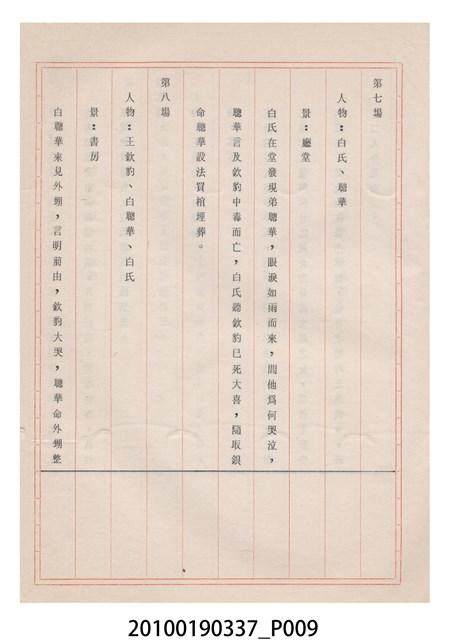 第七場
人物：白氏、聰華
景：廳堂
白氏在堂發現弟聰華，眼淚如雨而來，問他為何哭泣，
聰華言及欽豹中毒而亡，白氏聽欽豹已死大喜，隨取銀
命聰華設法買棺埋葬。
第八場
人物：王欽豹、白聰華、白氏
景：書房
白聰華來見外甥，言明前由，欽豹大哭，聰華命外甥整
20100190337_P009